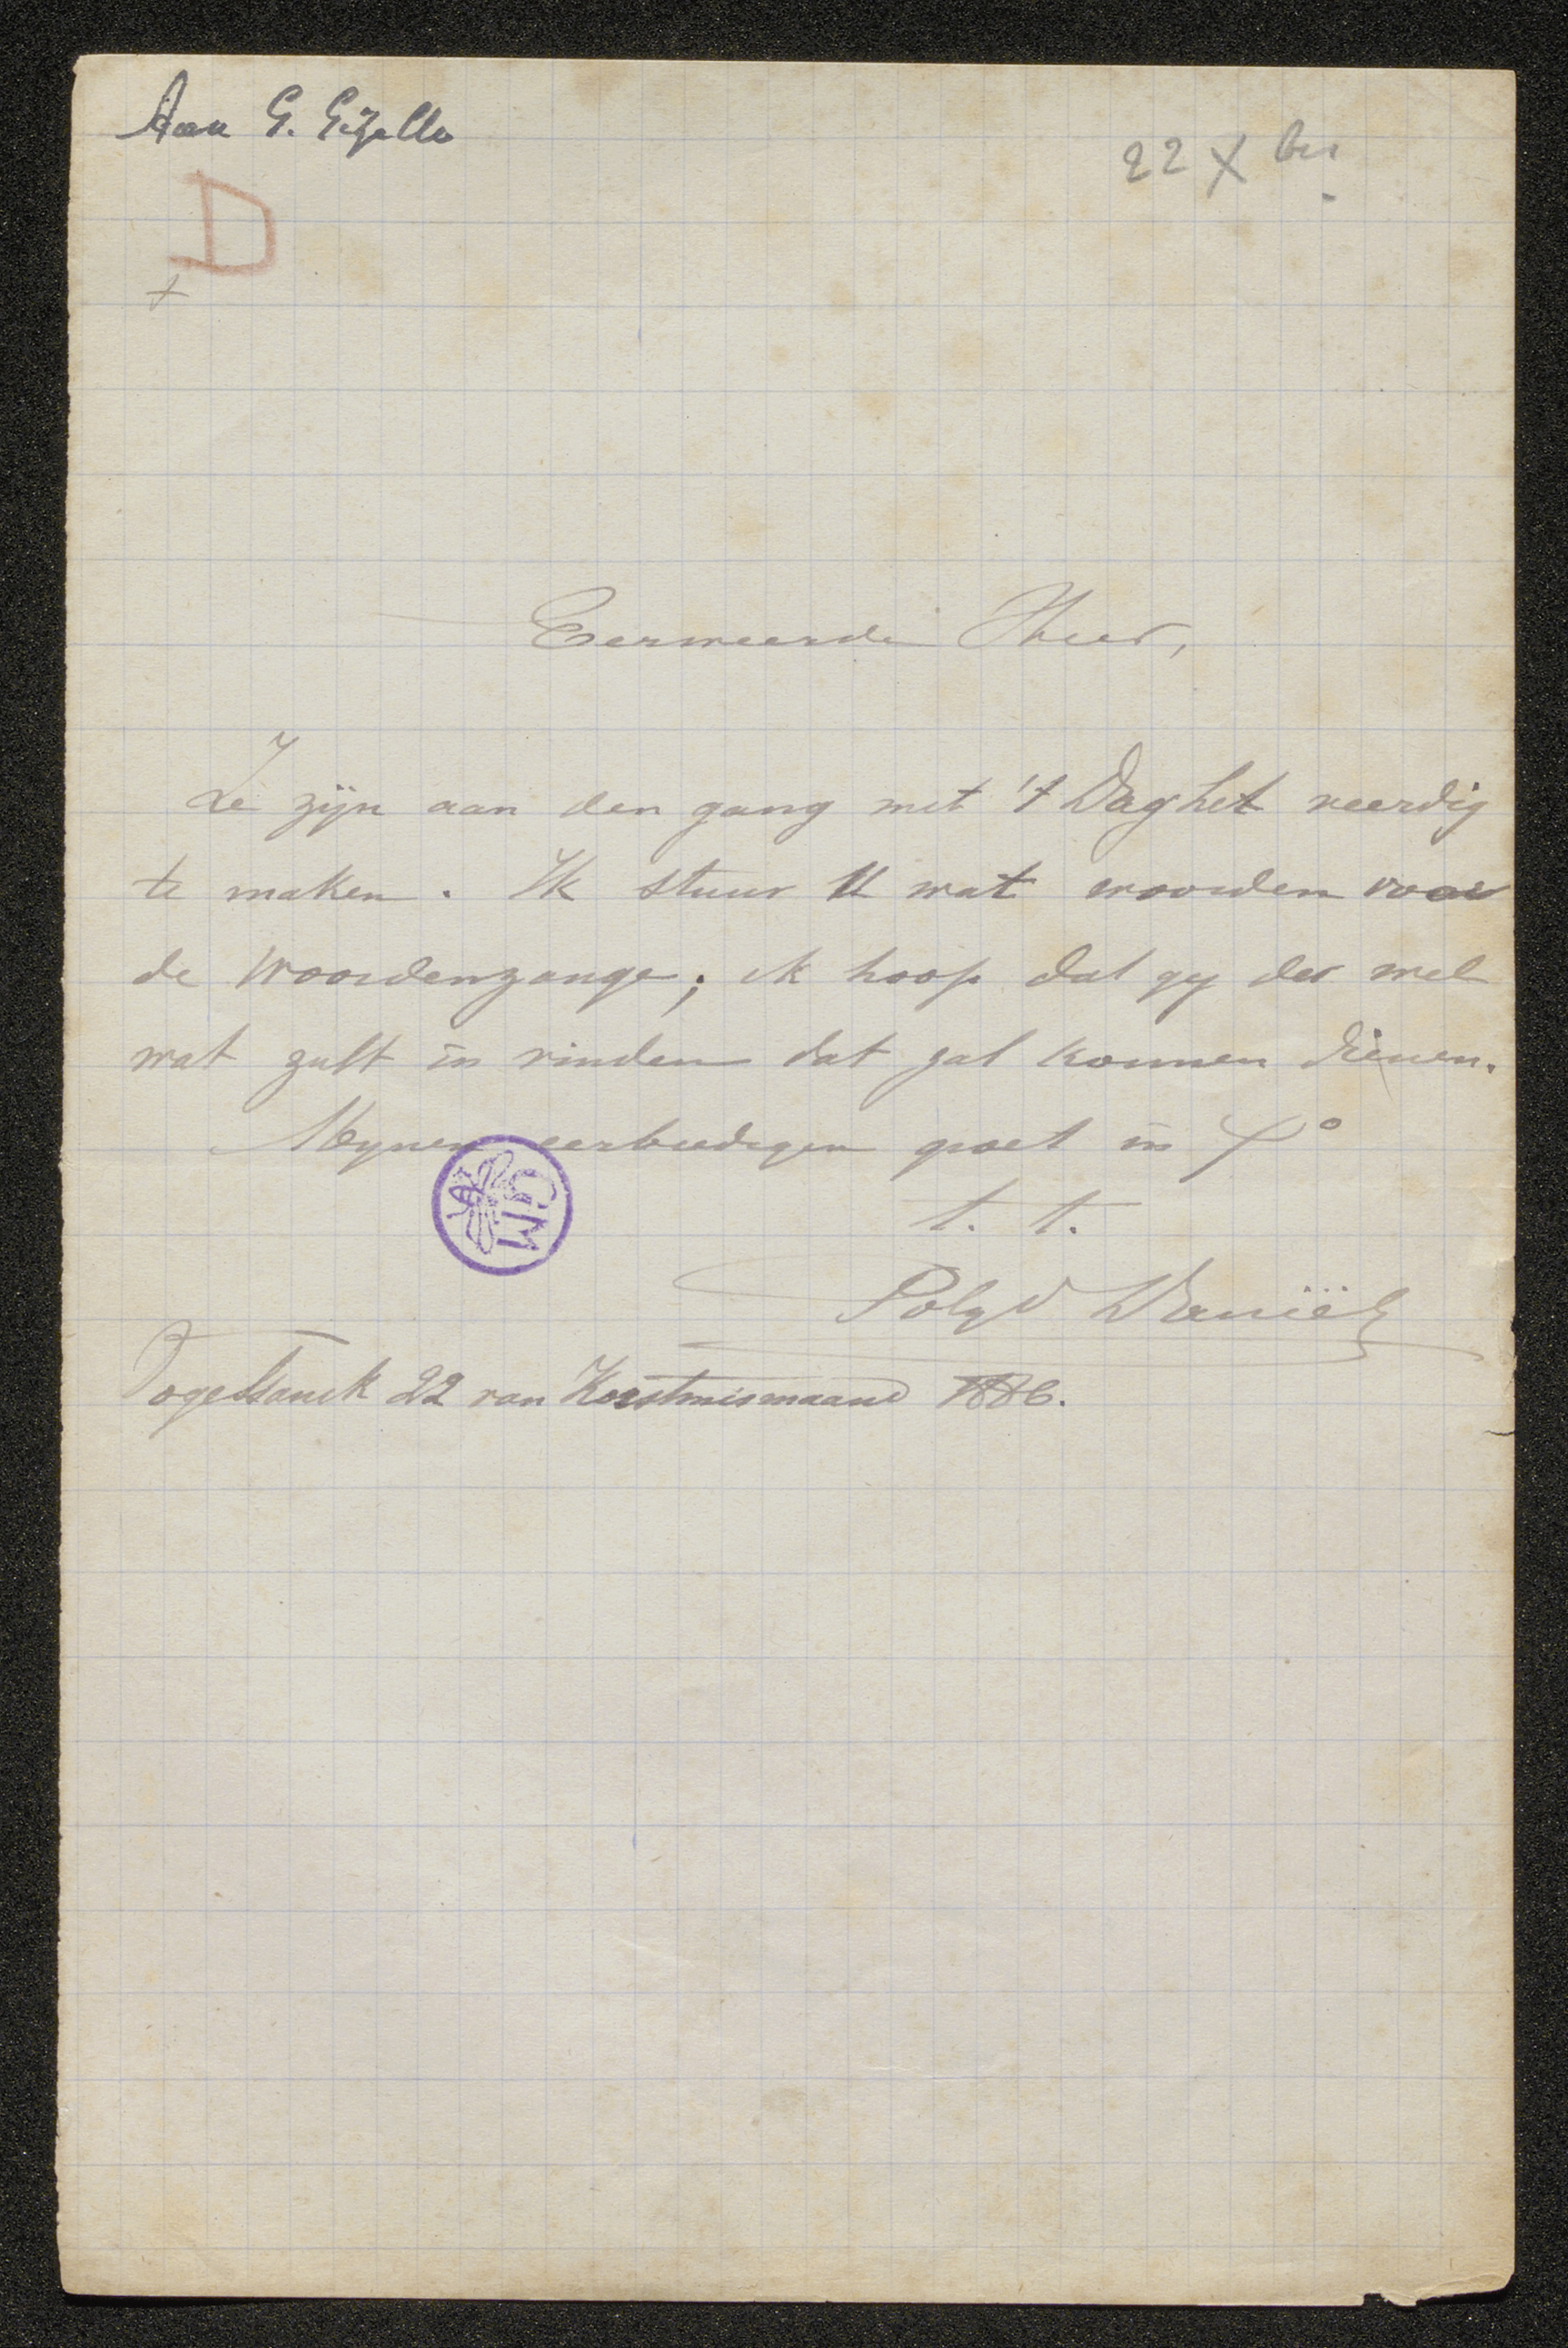 Aan G. Gezelle
22 Xber
D
+
Eerweerde Heer,
Ze zijn aan den gang met 't Daghet veerdig
te maken. Ik stuur U wat woorden voor
de Woordenzange; ik hoop dat gy der wel
wat zult in vinden dat zal konnen dienen.
Mynen eerbiedigen groet in X°
t. t.
GM
Polyd Daniëls
Vogelsanck 22 van Korstmismaand 1886.